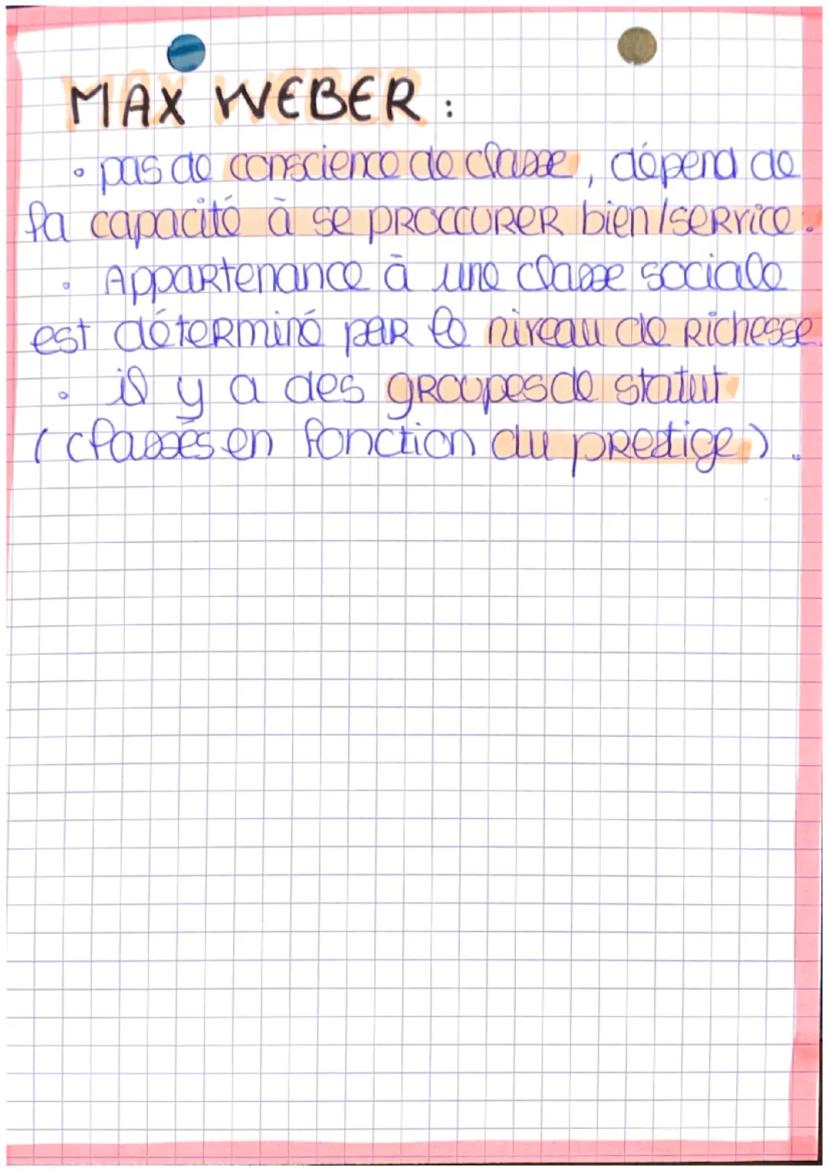 MAX WEBER :
• pas de conscience de classe, dépend de
la capacité à se PROCCURER bien/service.
• Appartenance à une classe sociale
est déterminé par le niveau de Richesse.
• il y a des groupes de statut
(classés en fonction du prestige).